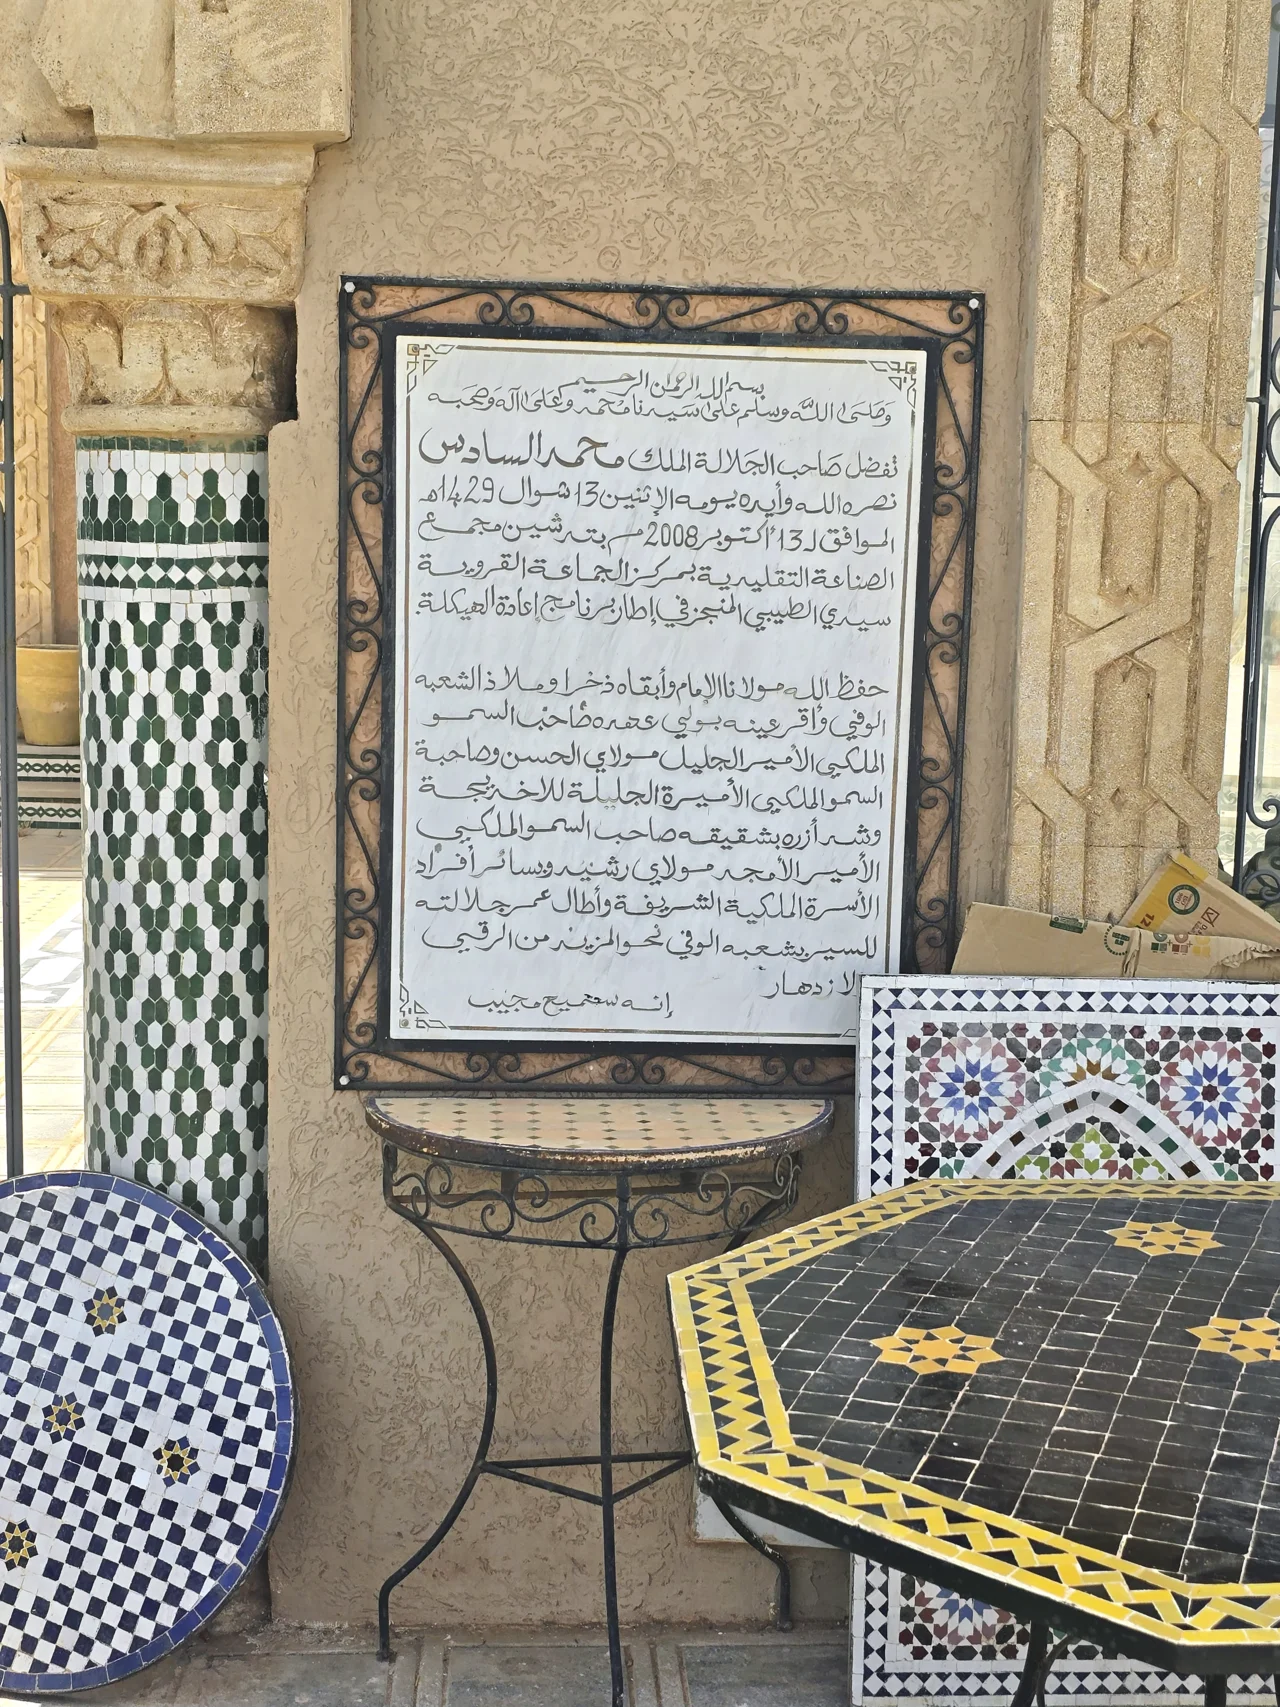 بسم الله الرحمان الرحيم
وصلى الله وسلم على سيدنا محمد وعلى آله وصحبه
تفضل صاحب الجلالة الملك محمد السادس
نصره الله وأيده يومه الإثنين 13 شوال 1429هـ
الموافق لـ 13 أكتوبر 2008 م بتدشين مجمع
الصناعة التقليدية بمركز الجماعة القروية
سيدي الطيبي المنجز في إطار برنامج إعادة الهيكلة.
حفظ الله مولانا الإمام وأبقاه ذخرا وملاذا لشعبه
الوفي وأقر عينه بولي عهده صاحب السمو
الملكي الأمير الجليل مولاي الحسن وصاحبة
السمو الملكي الأميرة الجليلة للاخديجة
وشد أزره بشقيقه صاحب السمو الملكي
الأمير الأمجد مولاي رشيد وبسائر أفراد
الأسرة الملكية الشريفة وأطال عمر جلالته
للسير بشعبه الوفي نحو المزيد من الرقي
الازدهار
إنه سميع مجيب
12